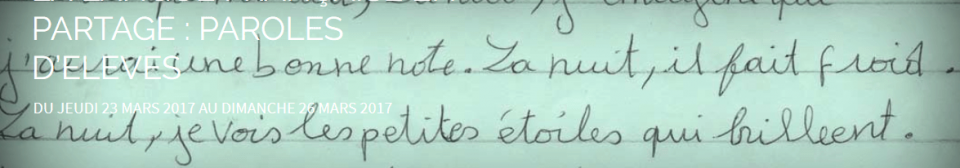 PARTAGE : PAROLES
D'ELEVES
DU JEUDI 23 MARS 2017 AU DIMANCHE 26 MARS 2017
j'aurai une bonne note. La nuit, il fait froid.
La nuit, je vois les petites étoiles qui brilleent.